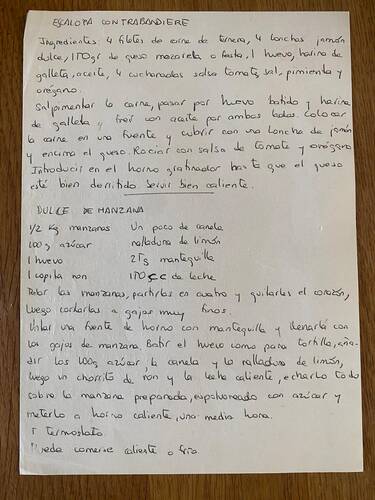 ESCALOPA CONTRABANDIERE
Ingredientes: 4 filetes de carne de ternera, 4 lonchas jamón
dulce, 150gr de queso mozarela o fasta, 1 huevo, harina de
galleta, aceite, 4 cucharadas salsa tomate, sal, pimienta y
orégano.
Salpimentar la carne, pasar por huevo batido y harina
de galleta y freir con aceite por ambos lados. Colocar
la carne en una fuente y cubrir con una loncha de jamón
y encima el queso. Rociar con salsa de tomate y orégano
Introducir en el horno gratinador hasta que el queso
esté bien derritido servir bien caliente.
DULCE DE MANZANA
1/2 Kg manzanas Un poco de canela
100g azúcar ralladura de limón
1 huevo 25g mantequilla
1 copita ron 150cc de leche
Pelar las manzanas, partirlas en cuatro y quitarles el corazón,
luego cortarlas a gajos muy finos.
Untar una fuente de horno con mantequilla y llenarla con
los gajos de manzana. Batir el huevo como para tortilla, aña-
dir los 100g azúcar, la canela y la ralladura de limón,
luego un chorrito de ron y la leche caliente, echarlo todo
sobre la manzana preparada, espolvoreado con azúcar y
meterlo a horno caliente, una media hora.
5 termostato.
Puede comerse caliente o frío.